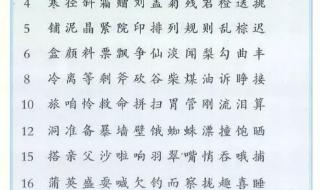 4 寒 径 斜 霜 赠 刘 盖 菊 残 君 橙 送 挑
5 铺 泥 晶 紧 院 印 排 列 规 则 乱 棕 迟
6 盒 颜 料 票 飘 争 仙 闻 梨 勾 曲 丰
8 冷 离 等 斧 砍 谷 柴 煤 油 诉 睁 接
10 旅 咱 怜 救 命 拼 扫 胃 管 刚 流 泪 算
12 洞 准 备 暴 墙 壁 饿 蜘 蛛 漂 撞 饱 晒
14 搭 亲 父 沙 啦 响 羽 翠 嘴 悄 吞 哦 捕
16 蒲 英 盛 耍 喊 欠 钓 而 察 拢 趣 喜 睡